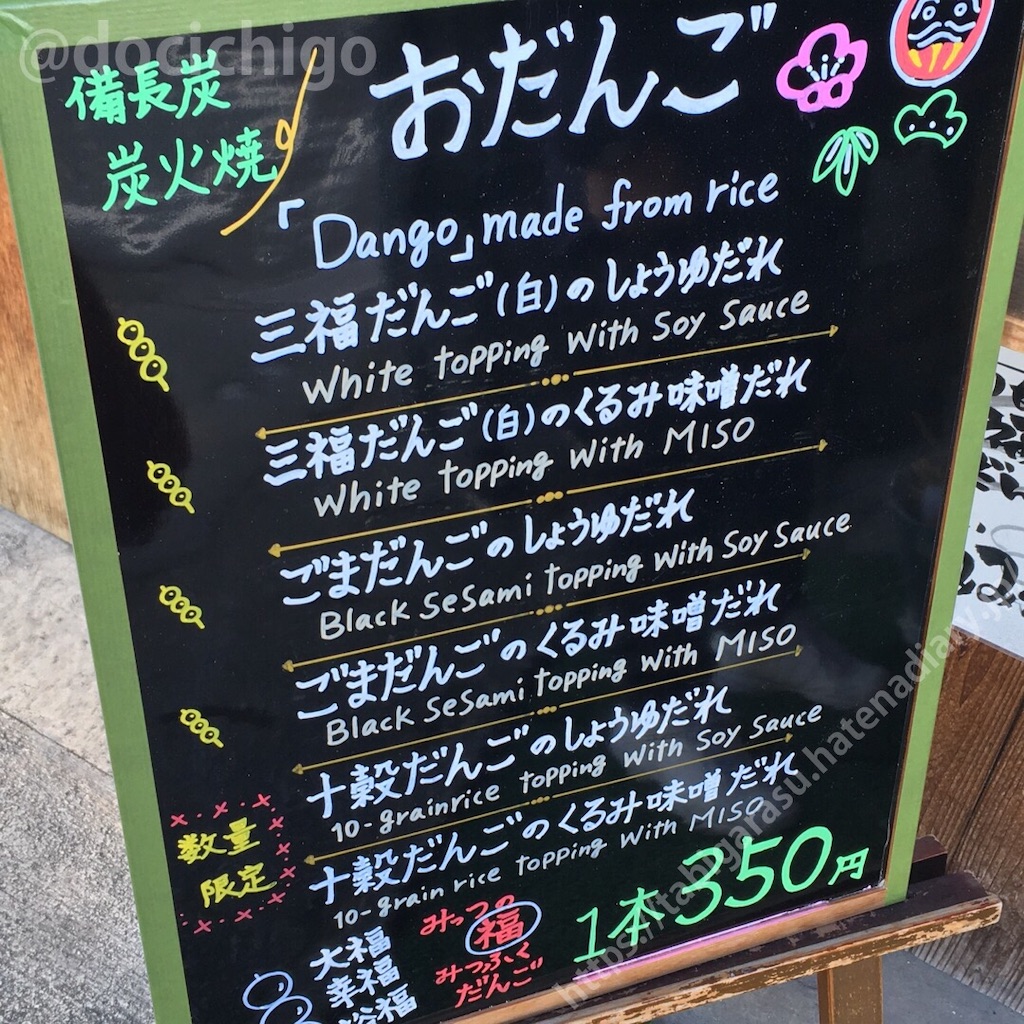 @docichigo
備長炭
炭火焼
おだんご
「Dango」made from rice
三福だんご(白)のしょうゆだれ
White topping with Soy Sauce
三福だんご(白)のくるみ味噌だれ
White topping with MISO
ごまだんごのしょうゆだれ
Black Sesami topping with Soy Sauce
ごまだんごのくるみ味噌だれ
Black Sesami topping with MISO
十穀だんごのしょうゆだれ
10-grainrice topping with Soy Sauce
十穀だんごのくるみ味噌だれ
10-grain rice topping with MISO
数量
限定
1本350円
みっつの
福
みつふく
だんご
大福
幸福
裕福
https://tabigarasu.hatenadiary.j